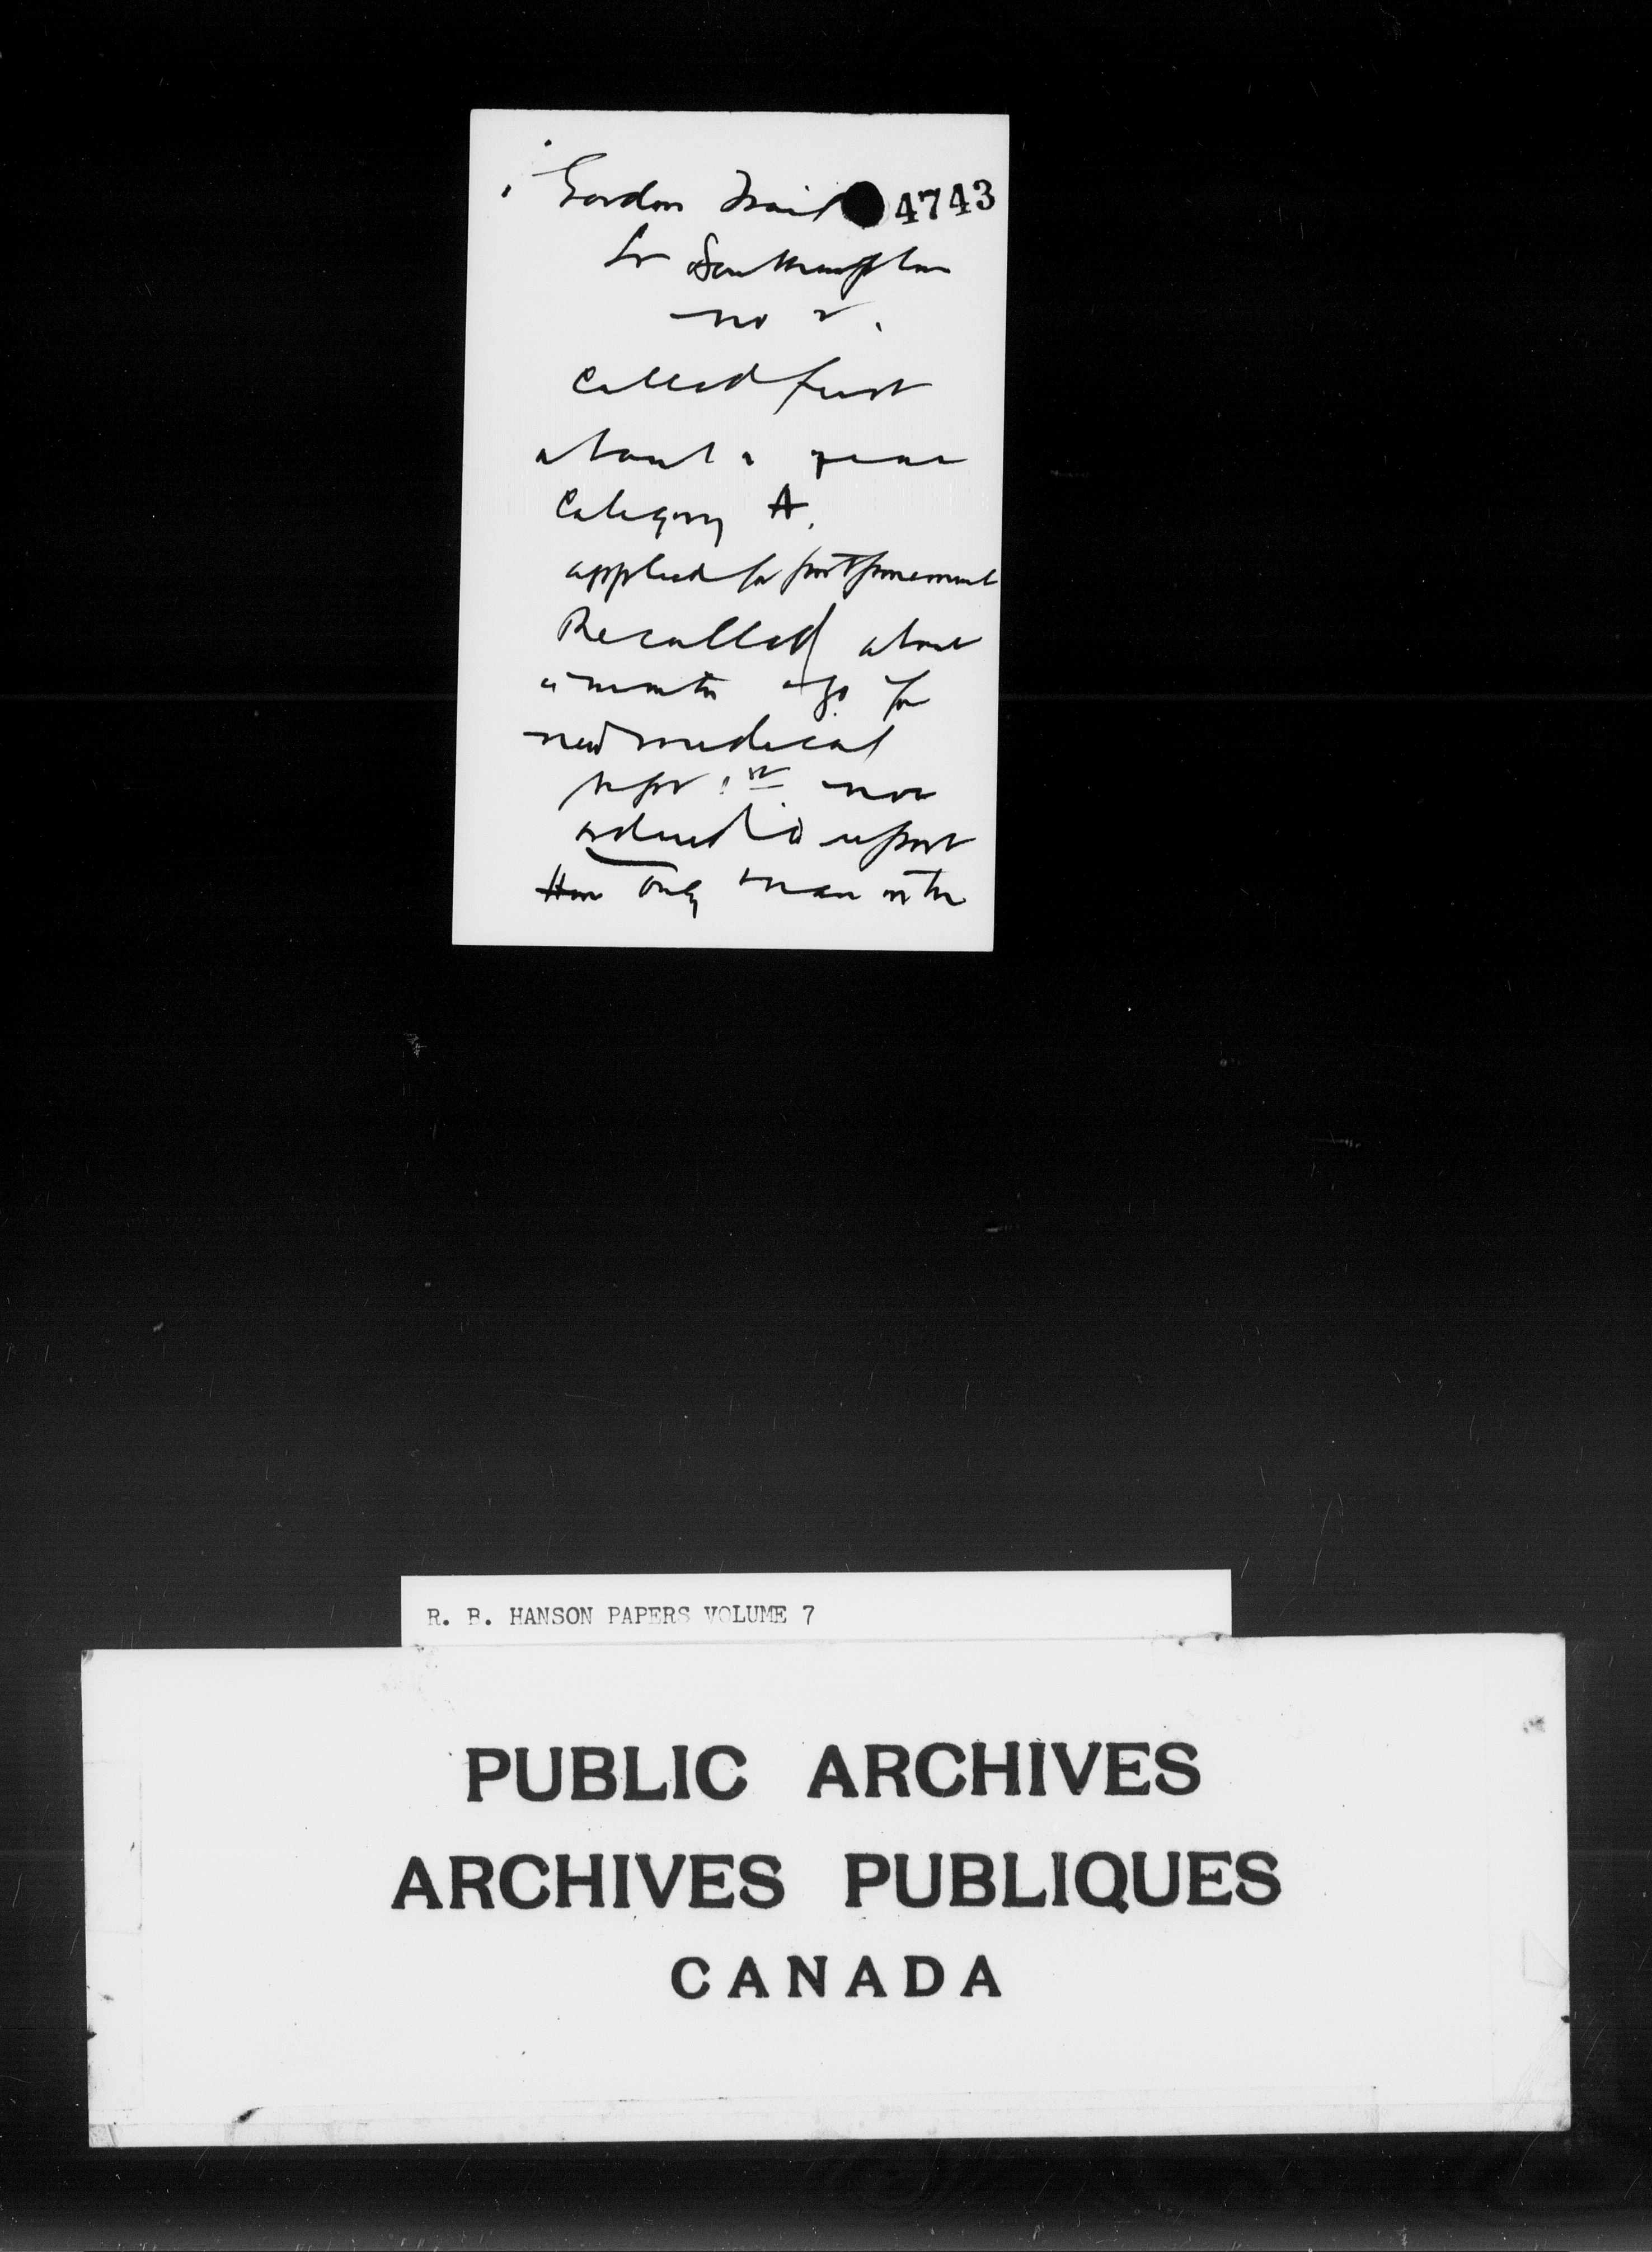 Gordon 4743
Lr Southampton
no 2.
Called first
about a year
Category A.
applied for postponement
Recalled about
a month ago for
new medical
now
ordered to report
only man on the
R. B. HANSON PAPERS VOLUME 7
PUBLIC ARCHIVES
ARCHIVES PUBLIQUES
CANADA